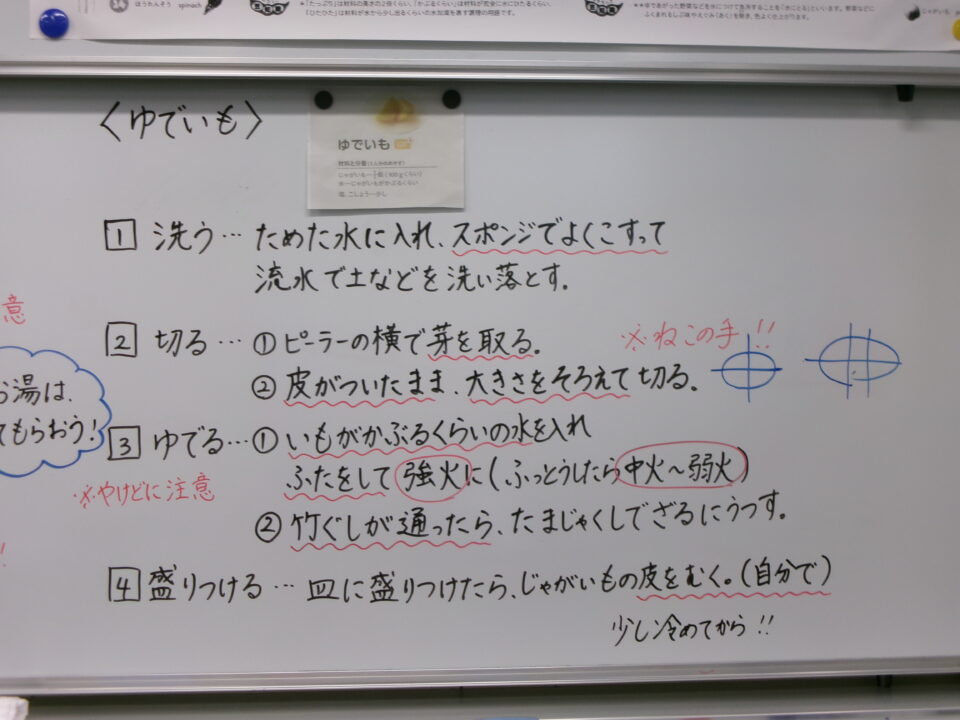 ほうれんそう spinach
＊「たっぷり」は材料の高さの2倍くらい、「かぶるくらい」は材料が完全にひたるくらい、
「ひたひた」は材料が水から少し出るくらいの水加減を表す調理の用語です。
＊＊ゆであがった野菜などを水につけて冷ますことを「水にとる」といいます。野菜などに
ふくまれるしぶ味やえぐみ(あく)を除き、色よく仕上がります。
じゃがいも
〈ゆでいも〉
ゆでいも
材料と分量(1人分のめやす)
じゃがいも…
(100gくらい)
水…じゃがいもがかぶるくらい
塩、こしょう…少し
1 洗う…ため​た水に入れ、スポンジでよくこすって
流水で土などを洗い落とす。
意
2 切る…①ピーラーの横で芽を取る。
※ねこの手!!
②皮がついたまま、大きさをそろえて切る。
お湯は、
てもらおう!
3 ゆでる…①いもがかぶるくらいの水を入れ
ふたをして強火に(ふっとうしたら中火〜弱火)
※やけどに注意
②竹ぐしが通ったら、たまじゃくしでざるにうつす。
!!
4 盛りつける…皿に盛りつけたら、じゃがいもの皮をむく。(自分で)
少し冷めてから!!